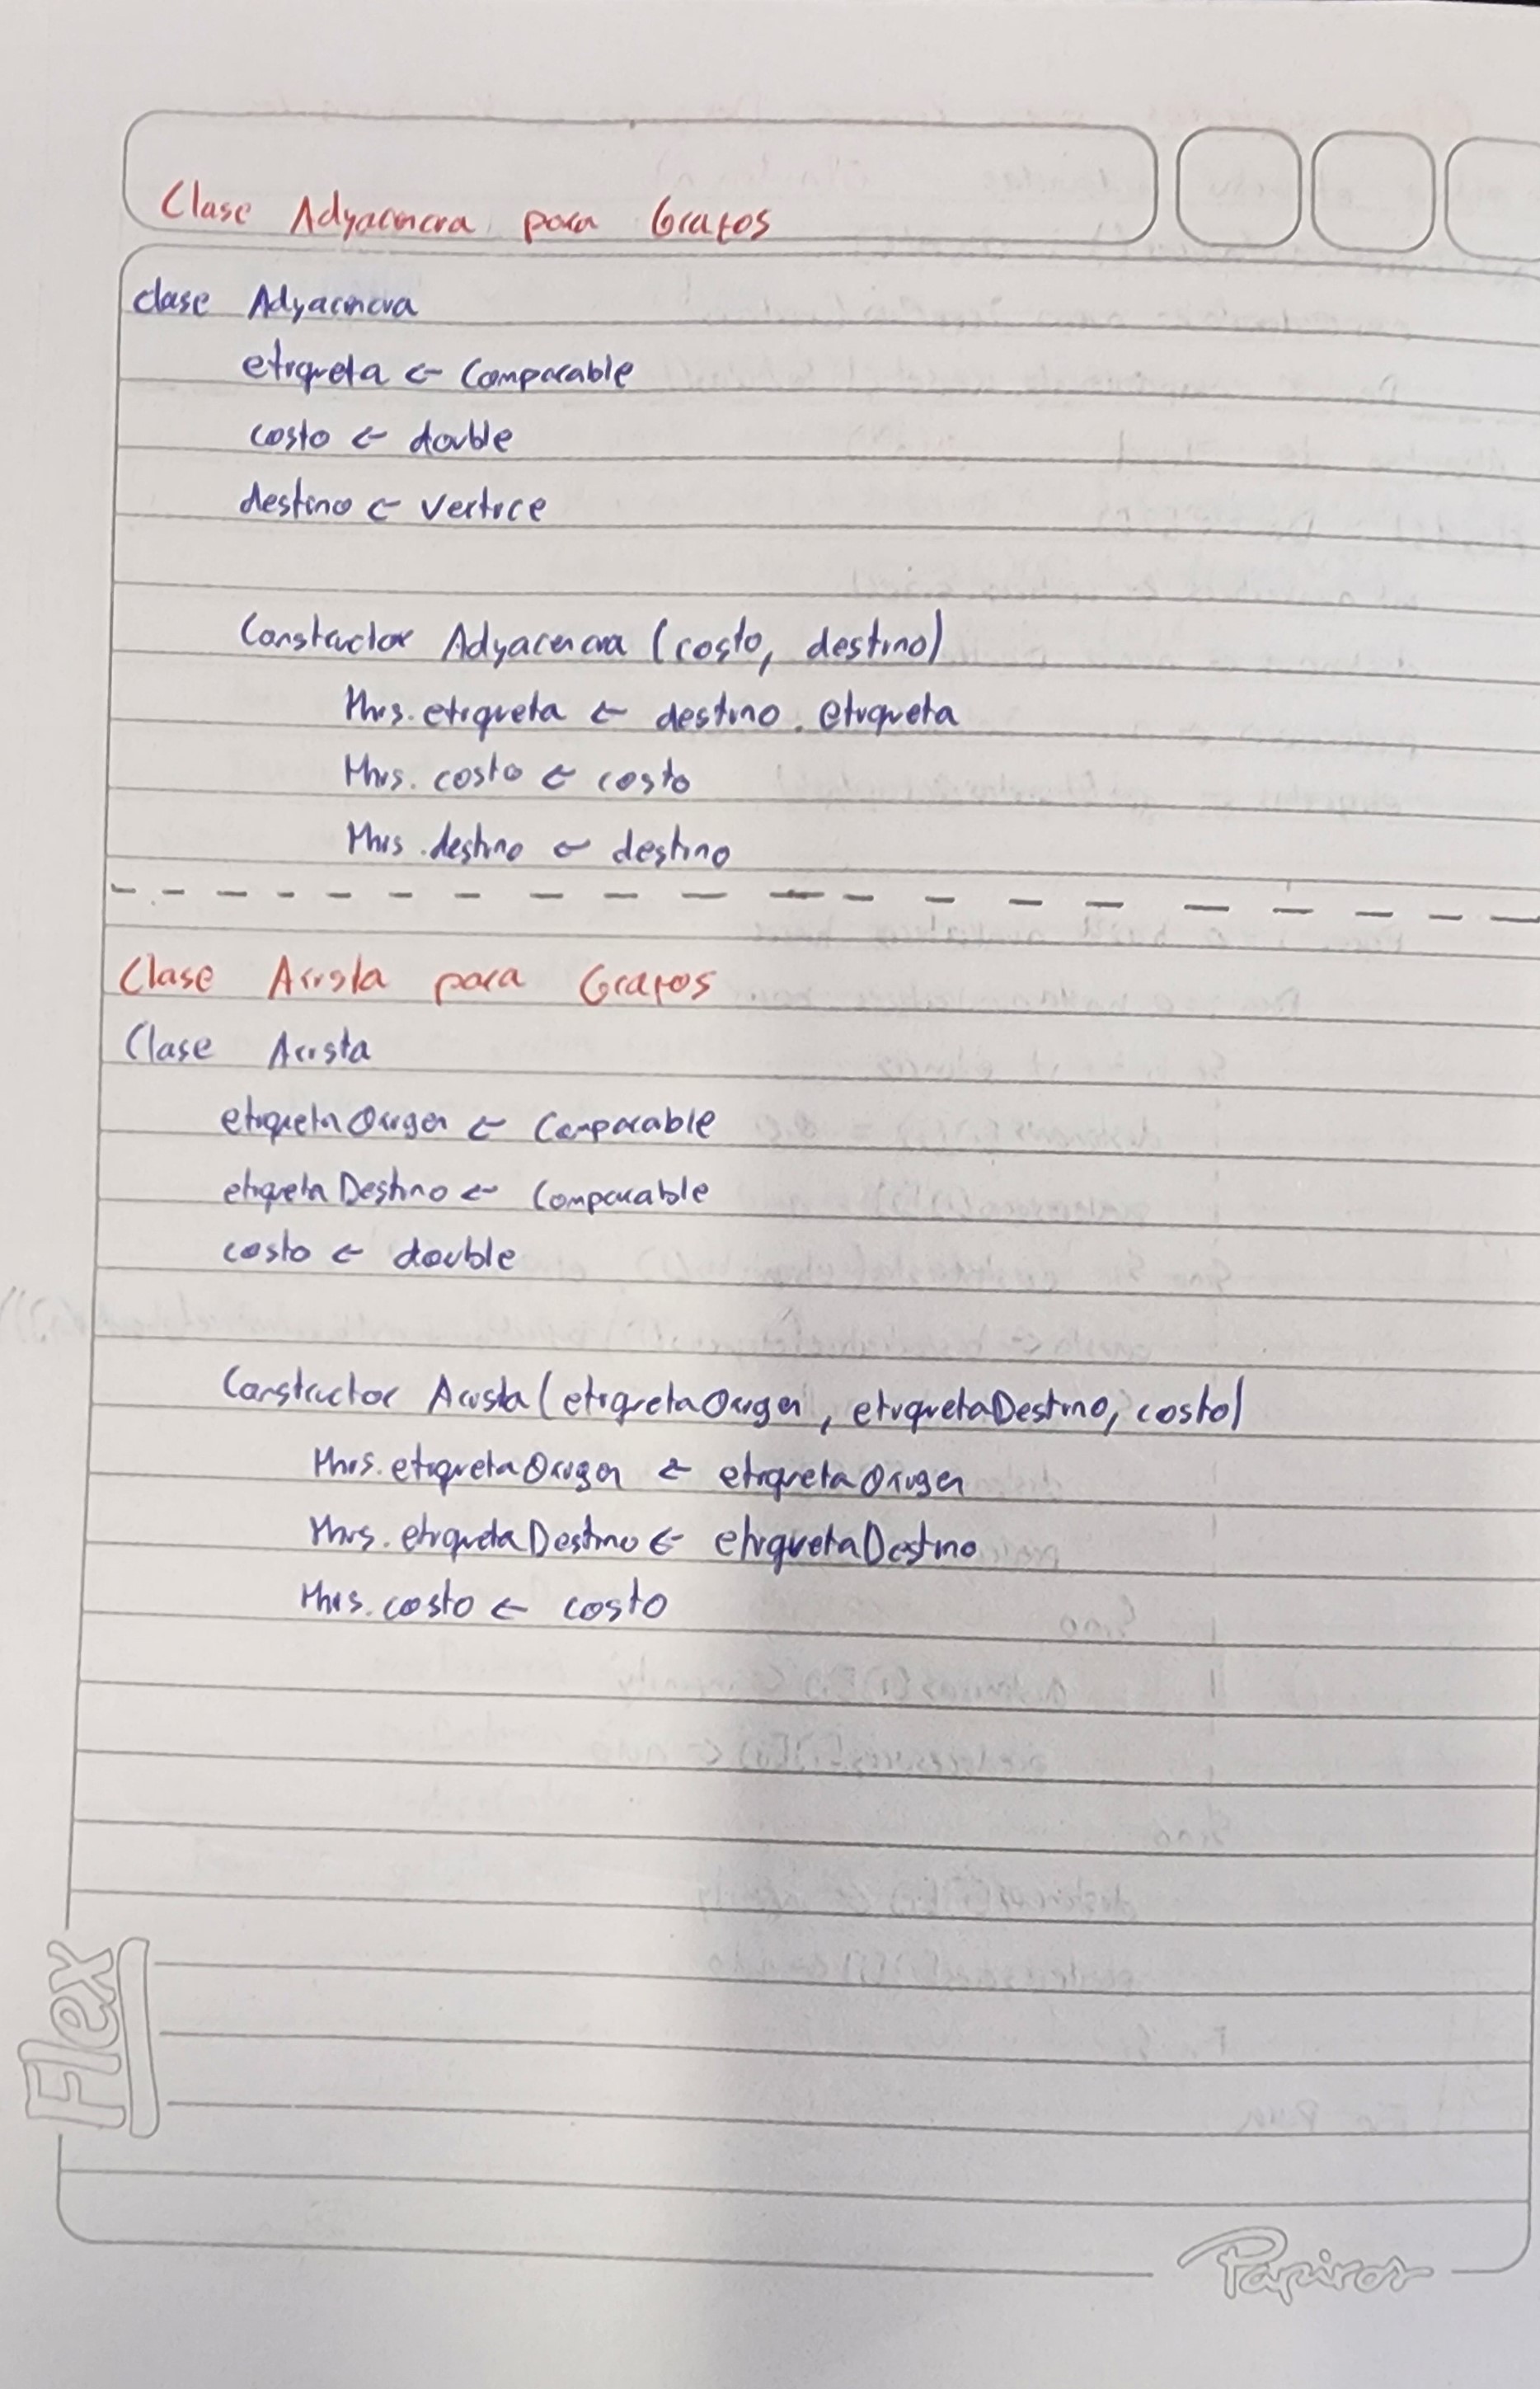 Clase Adyacencia para Grafos
clase Adyacencia
etiqueta ← Comparable
costo ← double
destino ← Vertice
Constructor Adyacencia (costo, destino)
this.etiqueta ← destino.etiqueta
this.costo ← costo
this.destino ← destino
Clase Arista para Grafos
Clase Arista
etiquetaOrigen ← Comparable
etiquetaDestino ← Comparable
costo ← double
Constructor Arista(etiquetaOrigen, etiquetaDestino, costo)
this.etiquetaOrigen ← etiquetaOrigen
this.etiquetaDestino ← etiquetaDestino
this.costo ← costo
Flex
Papiros